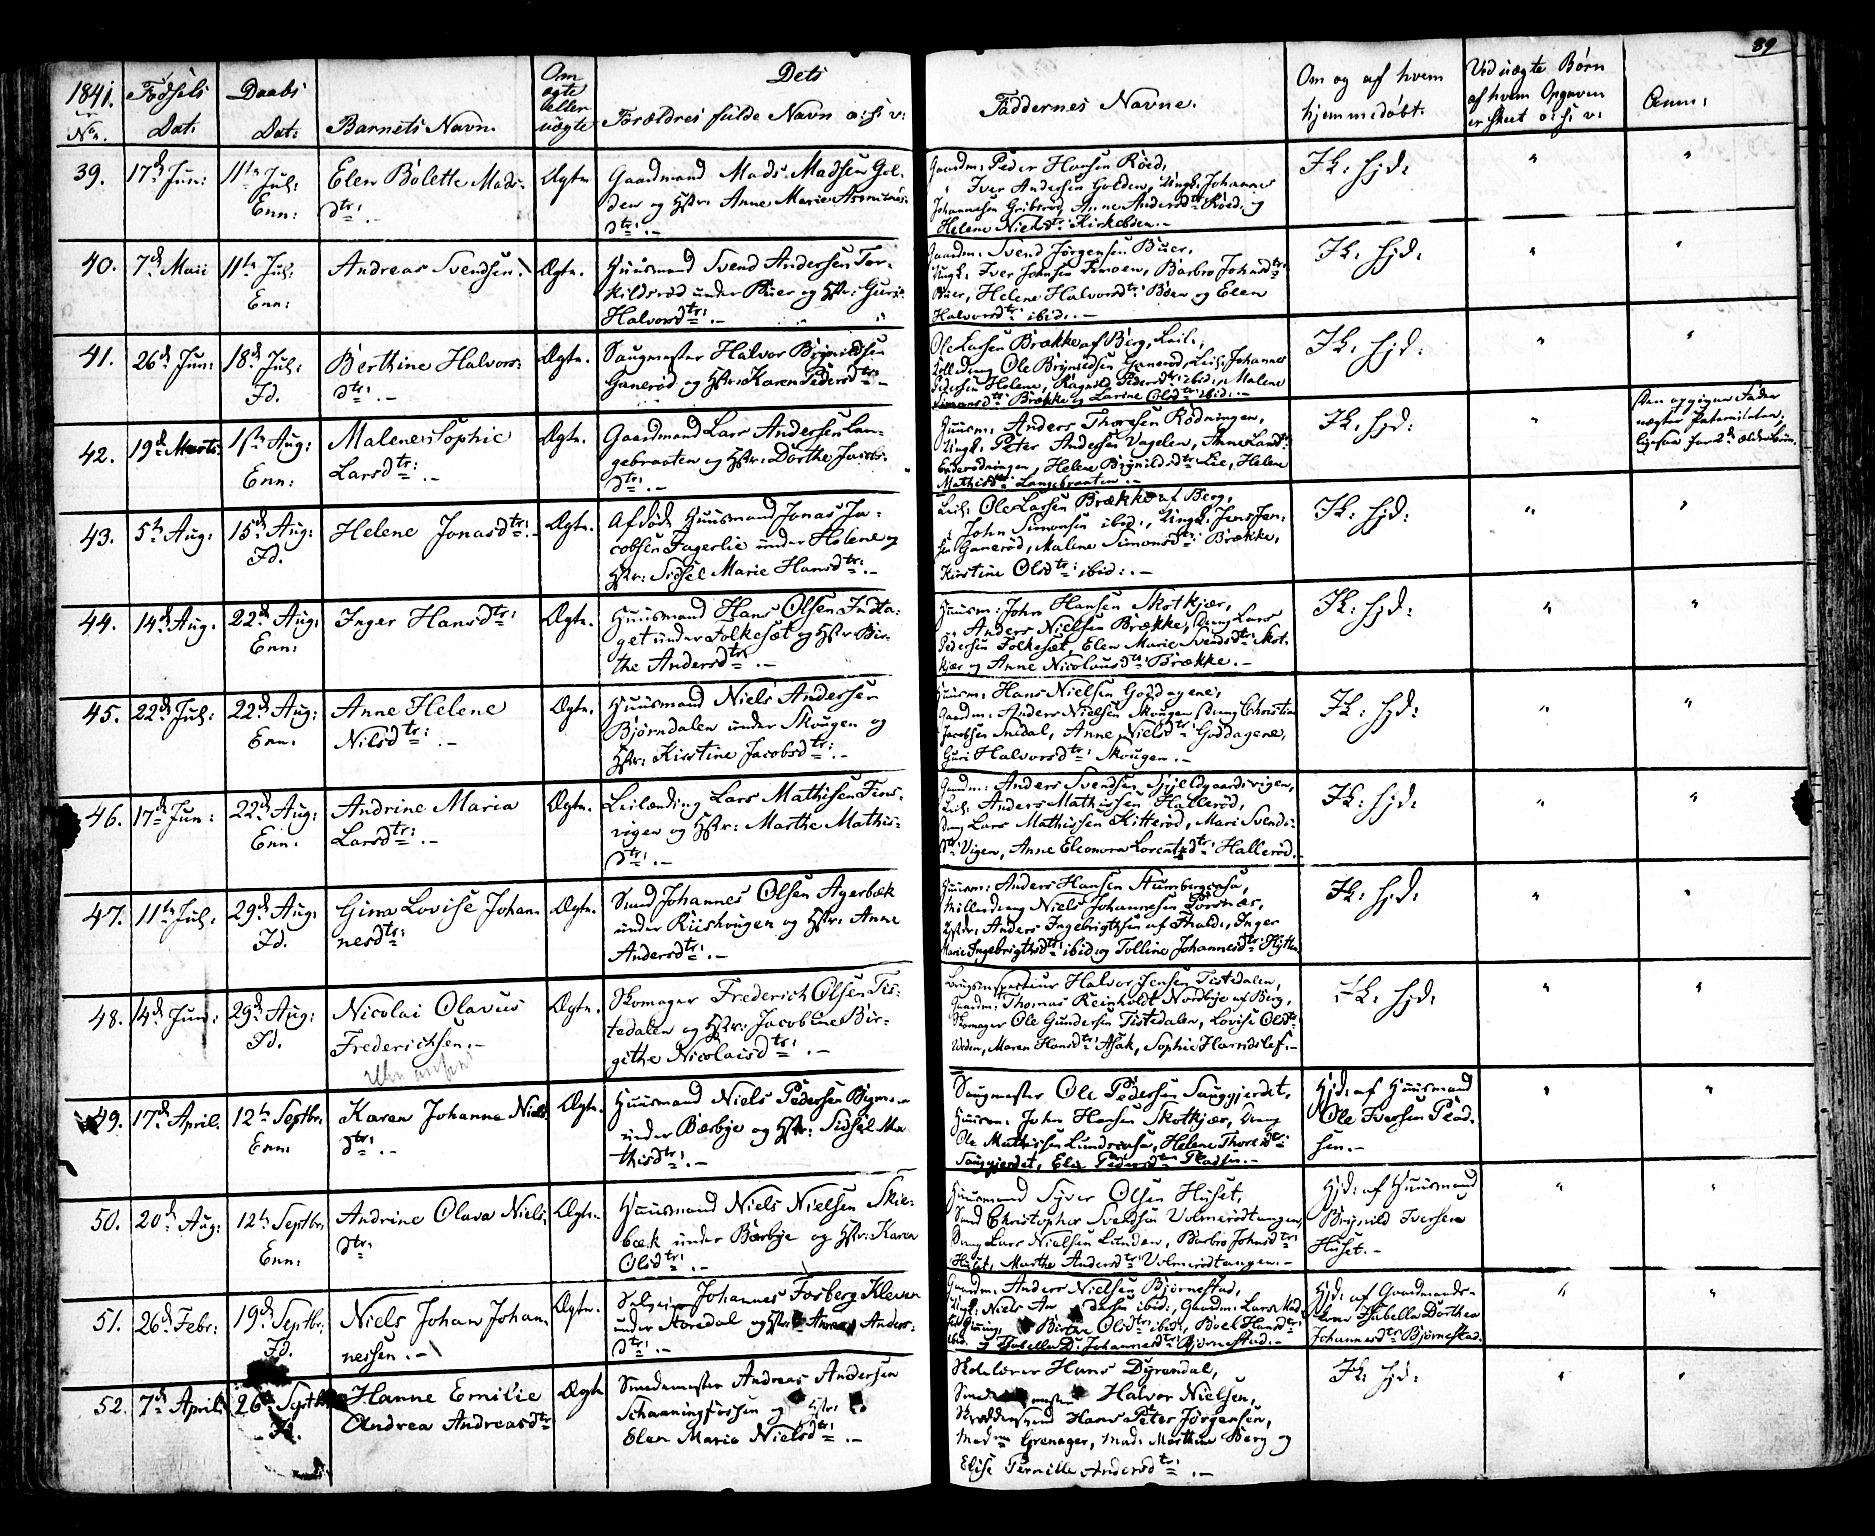 89
1841.
No.
Fødsels
Dat:
Daabs
Dat:
Barnets Navn.
Om
ægte
eller
uægte
Dets
Forældres fulde Navn o: s: v:
Faddernes Navne.
Om og af hvem
hjemmedøbt.
Ved uægte Børn
af hvem Opgaven
er skeet o: s: v:
Anm:
39. 17de Jun: 11te Jul:
Enn:
Elen Bolette Mads-
dtr: .-
Ægte
Gaardmand Mads Madsen Gol-
den og Hstr: Anne Marie Asmunds-
dtr: .-
Gaardm: Peder Hansen Röed,
" Iver Andersen Golden, Ungk: Johannes
Johannesen Gribsrød, Anne Andersdtr: Röed, og
Helene Nielsdtr: Kirkebøen.-
Ik: hjd:
40. 7de Maii 11te Jul:
Enn:
Andreas Svendsen.
Ægte.
Huusmand Svend Andersen Tor-
kildsrød under Buer og Hstr: Guri
Halvorsdtr: .-
Gaardm: Svend Jørgensen Buer,
Ungk: Iver Johnsen Temoen, Barbro Johnsdtr:
Buer, Helene Halvorsdtr: Böen og Elen
Halvorsdtr: ibid: .-
Ik: hjd:
41. 26de Jun: 18de Jul:
Id.
Berthine Halvors-
dtr: .-
Ægte.
Saugmester Halvor Brynildsen
Ganerød og Hstr: Karen Pedersdtr: .-
Ole Larsen Brække af Berg, Leil:,
Ole Brynildsen Ganerød, Leil: Johannes
Pedersen Helene, Ragnild Pedersdtr: ibid:, Malene
Simonsdtr: Brække og Larine Olsdtr: ibid: .-
Ik: hjd:
42. 19de Marts 1ste Aug:
Enn:
Malene Sophie
Larsdtr: .-
Ægte.
Gaardmand Lars Andersen Lan-
gebraaten og Hstr: Dorthe Jacobs-
dtr: .-
Huusm: Anders Thoresen Rödningen,
Ungk: Peter Andersen Vagelen, Anne Larsd:
Enderødningen, Helene Brynildsdtr: Lie, Helene
Mathisdtr: Langebraaten .-
Ik: hjd:
Den opgivne Fader
nægter Paterniteten,
ligesaa for 2de ældre Børn.
43. 5te Aug: 15de Aug:
Id.
Helene Jonasdtr: .-
Ægte.
Afdöde Huusmand Jonas Ja-
cobsen Fagerlie under Holene og
Hstr: Sidsel Marie Hansdtr: .-
Leil: Ole Larsen Brække af Berg,
" John Simonsen ibid:, Ungk: Jens Jen-
sen Ganerød, Malene Simonsdtr: Brække,
Kirstine Olsdtr: ibid: .-
Ik: hjd:
44. 14de Aug. 22de Aug:
Enn:
Inger Hansdtr:
Ægte.
Huusmand Hans Olsen Indta-
get under Folkesæt og Hstr: Bir-
the Andersdtr: .-
Huusm: John Hansen Skotkjær,
" Anders Nielsen Brække, Dreng Lars
Pedersen Folkesæt, Elen Marie Svendsdtr: Skot-
kjær og Anne Nicolausdtr: Brække .-
Ik: hjd:
45. 22de Jul: 22de Aug:
Enn:
Anne Helene
Nilsdtr: .-
Ægte.
Huusmand Niels Andersen
Björndalen under Skougen og
Hstr: Kirstine Jacobsdtr: .-
Huusm: Hans Nielsen Goddagene,
Gaardm: Anders Nielsen Skougen, Dreng Christian
Jacobsen Snedal, Anne Nielsdtr: Goddagene,
Guri Halvorsdtr: Skougen .-
Ik: hjd:
46. 17de Jun: 22de Aug:
Enn:
Andrine Maria
Larsdtr: .-
Ægte.
Leilænding Lars Mathisen Fins-
vigen og Hstr: Marthe Mathis-
dtr: .-
Gaardm: Anders Svendsen Gjeldgaardsvigen,
Leil: Anders Mathissen Hallerød,
Dreng Lars Mathissen Kitterød, Mari Svends-
dtr: Vigen, Anne Eleonora Lorentzdtr: Hallerød.
Ik: hjd:
47. 11te Jul: 29de Aug:
Id.
Gina Lovise Johan-
nesdtr:
Ægte.
Smed Johannes Olsen Agerbæk
under Riishougen og Hstr: Anne
Andersdtr: .-
Huusm: Anders Hansen Stumbergaasa,
Mölledreng Niels Johannesen Porsnæs,
Anders Ingebrigtsen af Ihald:, Inger
Marie Ingebrigtsdtr: ibid og Tolline Johannesdtr: Hytten
Ik: hjd:
48. 14de Jun: 29de Aug:
Id.
Nicolai Olavus
Frederichsen.-
Ægte.
Skomager Frederich Olsen Tis-
tedalen og Hstr: Jacobine Bir-
githe Nicolaisdtr: .-
Brugsinspecteur Halvor Jensen Tistedalen,
Gaardm: Thomas Reinholdt Nordbye af Berg,
Skomager Ole Gundersen Tistedalen, Lovise Olsdtr:
Veden, Maren Hansdtr: Asak, Sophie Harridslef .-
Ik: hjd:
49. 17de April. 12te Septbr.
Enn:
Karen Johanne Niels
dtr: .-
Ægte.
Huusmand Niels Pedersen
under Bærbye og Hstr: Sidsel Ma
thisdtr: .-
Saugmester Ole Pedersen Sauggjerdet,
Huusm: John Hansen Skotkjær, Dreng
Ole Mathissen Lundeaasa, Helene Thoresdtr:
Sauggjerdet, Elen Pedersdtr: Pladsen .-
Hjd: af Huusmand
Ole Iversen Plad-
sen .-
50. 20de Aug: 12te Septbr.
Enn:
Andrine Olava Niels-
dtr:
Ægte.
Huusmand Niels Nielsen Skie-
bæk under Bærbye og Hstr: Karen
Olsdtr: .-
Huusmand Syver Olsen Huset,
Smed Christopher Svendsen Volmerødtangen,
Dreng Lars Nielsen Lunden, Barbro Johnsdtr:
Huset, Marthe Andersdtr: Volmerødtangen .-
Hjd: af Huusmand
Brynild Iversen
Huset .-
51. 26de Febr: 19de Septbr.
Id.
Niels Johan Johan-
nessen .-
Ægte.
Johannes Fosberg Kleven
under Aaredal og Hstr: Anne Anders-
dtr: .-
Gaardm: Anders Nielsen Björnestad,
Ungk: Niels Andersen ibid:, Gaardm: Lars Mad-
Birthe Olsdtr: ibid:, Boel Hansdtr:
ibid: Isabella D: Johannesdtr: Björnestad .-
Hjd: af Gaardmands-
kone Isabella Dorthea
Johannesdtr: Björnestad.
52. 7de April. 26de Septbr
Id.
Hanne Emilie
Andrea Andreasdtr
Ægte
Smedemester Andreas Andersen
Schanningfossen og Hstr:
Elen Maria Nielsdtr: .-
Skolelærer Hans Dyrendal,
Smedemester Halvor Nielsen,
Skræddersvend Hans Peter Jörgensen,
Madm Grenager, Mad: Marthine Berg og
Elise Pernille Andersdtr: .-
Ik: hjd: